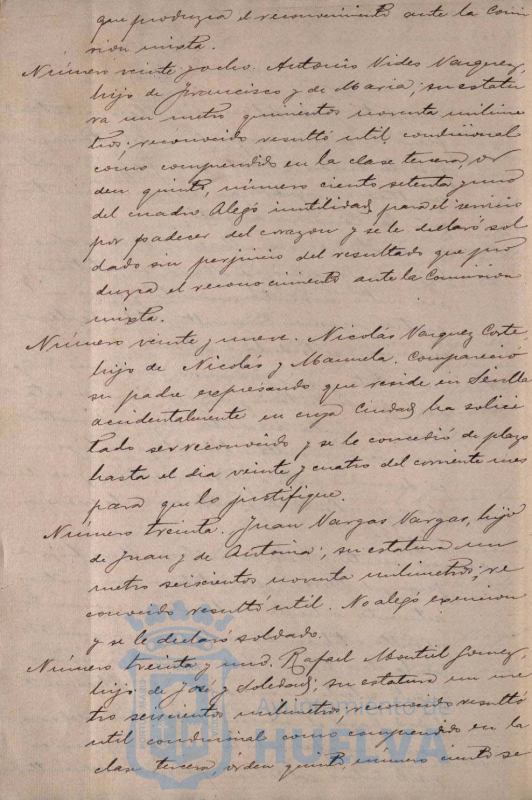 que produzca el reconocimiento ante la Comi
sion mixta.
Número veinte y ocho. Antonio Vides Vazquez,
hijo de Francisco y de Maria; su estatu
ra un metro quinientos noventa milime
tros; reconocido resultó util condicional
como comprendido en la clase tercera, or
den quinto, número ciento setenta y uno
del cuadro. Alegó inutilidad para el servicio
por padecer del corazon y se le declaró sol
dado sin perjuicio del resultado que pro
duzca el reconocimiento ante la Comision
mixta.
Número veinte y nueve. Nicolás Vazquez Corte
hijo de Nicolás y Manuela. Compareció
su padre expresando que reside en Sevilla
accidentalmente en cuya Ciudad ha solici
tado ser reconocido y se le concedió de plazo
hasta el dia veinte y cuatro del corriente mes
para que lo justifique.
Número treinta. Juan Vargas Vargas, hijo
de Juan y de Antonia; su estatura un
metro seiscientos noventa milimetros; re
conocido resultó util. No alegó exencion
y se le declaró soldado.
Número treinta y uno. Rafael Montiel Gomez,
hijo de José y Soledad; su estatura un me
tro seiscientos milimetros; reconocido resultó
util condicional como comprendido en la
clase tercera, órden quinto, número ciento se
Ayuntamiento de
HUELVA